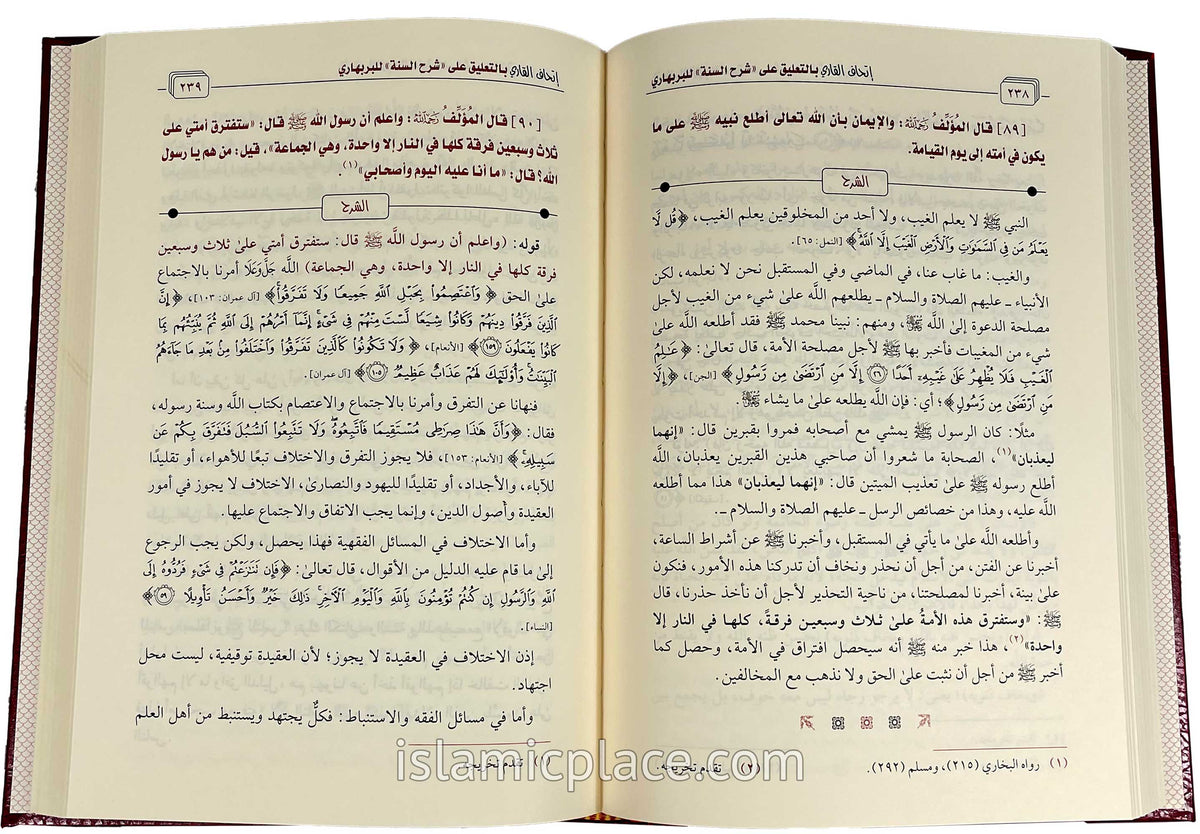 إتحاف القاري بالتعليق على «شرح السنة» للبربهاري
٢٣٨
[٨٩] قال المُؤَلِّفُ رَحِمَهُ اللَّهُ: والإيمان بأن الله تعالى أطلع نبيه ﷺ على ما
يكون في أمته إلى يوم القيامة.
الشرح
النبي ﷺ لا يعلم الغيب، ولا أحد من المخلوقين يعلم الغيب، ﴿قُل لَّا
يَعْلَمُ مَن فِي السَّمَٰوَٰتِ وَالْأَرْضِ الْغَيْبَ إِلَّا اللَّهُ﴾ [النمل: ٦٥].
والغيب: ما غاب عنا، في الماضي وفي المستقبل نحن لا نعلمه، لكن
الأنبياء ـ عليهم الصلاة والسلام ـ يطلعهم اللَّه علىٰ شيء من الغيب لأجل
مصلحة الدعوة إلىٰ اللَّه، ومنهم: نبينا محمد ﷺ فقد أطلعه اللَّه علىٰ
شيء من المغيبات فأخبر بها ﷺ لأجل مصلحة الأمة، قال تعالىٰ: ﴿عَٰلِمُ
الْغَيْبِ فَلَا يُظْهِرُ عَلَىٰ غَيْبِهِۦٓ أَحَدًا ۝٢٦ إِلَّا مَنِ ارْتَضَىٰ مِن رَّسُولٍ﴾ [الجن]، ﴿إِلَّا
مَنِ ارْتَضَىٰ مِن رَّسُولٍ﴾؛ أي: فإن اللَّه يطلعه علىٰ ما يشاء.
مثلًا: كان الرسول ﷺ يمشي مع أصحابه فمروا بقبرين قال: «إنهما
ليعذبان»(١)، الصحابة ما شعروا أن صاحبي هذين القبرين يعذبان، اللَّه
أطلع رسوله ﷺ علىٰ تعذيب الميتين قال: «إنهما ليعذبان» هذا مما أطلعه
اللَّه عليه، وهذا من خصائص الرسل ـ عليهم الصلاة والسلام ـ.
وأطلعه اللَّه علىٰ ما يأتي في المستقبل، وأخبرنا ﷺ عن أشراط الساعة،
أخبرنا عن الفتن، من أجل أن نحذر ونخاف أن تدركنا هذه الأمور، فنكون
علىٰ بينة، أخبرنا لمصلحتنا، من ناحية التحذير لأجل أن نأخذ حذرنا، قال
ﷺ: «وستفترق هذه الأمةُ علىٰ ثلاث وسبعين فرقةً، كلها في النار إلا
واحدة»(٢)، هذا خبر منه ﷺ أنه سيحصل افتراق في الأمة، وحصل كما
أخبر ﷺ من أجل أن نثبت علىٰ الحق ولا نذهب مع المخالفين.
(١) رواه البخاري (٢١٥)، ومسلم (٢٩٢).
(٢) تقدم تخريجه.
إتحاف القاري بالتعليق على «شرح السنة» للبربهاري
٢٣٩
[٩٠] قال المُؤَلِّفُ رَحِمَهُ اللَّهُ: واعلم أن رسول الله ﷺ قال: «ستفترق أمتي على
ثلاث وسبعين فرقة كلها في النار إلا واحدة، وهي الجماعة»، قيل: من هم يا رسول
الله؟ قال: «ما أنا عليه اليوم وأصحابي»(١).
الشرح
قوله: (واعلم أن رسول اللَّه ﷺ قال: ستفترق أمتي علىٰ ثلاث وسبعين
فرقة كلها في النار إلا واحدة، وهي الجماعة) اللَّه جَلَّ وَعَلَا أمرنا بالاجتماع
علىٰ الحق ﴿وَاعْتَصِمُوا۟ بِحَبْلِ اللَّهِ جَمِيعًا وَلَا تَفَرَّقُوا۟﴾ [آل عمران: ١٠٣]، ﴿إِنَّ
الَّذِينَ فَرَّقُوا۟ دِينَهُمْ وَكَانُوا۟ شِيَعًا لَّسْتَ مِنْهُمْ فِي شَيْءٍ إِنَّمَآ أَمْرُهُمْ إِلَى اللَّهِ ثُمَّ يُنَبِّئُهُم بِمَا
كَانُوا۟ يَفْعَلُونَ ۝١٥٩﴾ [الأنعام]، ﴿وَلَا تَكُونُوا۟ كَالَّذِينَ تَفَرَّقُوا۟ وَاخْتَلَفُوا۟ مِنۢ بَعْدِ مَا جَآءَهُمُ
الْبَيِّنَٰتُ وَأُو۟لَٰٓئِكَ لَهُمْ عَذَابٌ عَظِيمٌ ۝١٠٥﴾ [آل عمران].
فنهانا عن التفرق وأمرنا بالاجتماع والاعتصام بكتاب اللَّه وسنة رسوله،
فقال: ﴿وَأَنَّ هَٰذَا صِرَٰطِي مُسْتَقِيمًا فَاتَّبِعُوهُ وَلَا تَتَّبِعُوا۟ السُّبُلَ فَتَفَرَّقَ بِكُمْ عَن
سَبِيلِهِۦ﴾ [الأنعام: ١٥٣]، فلا يجوز التفرق والاختلاف تبعًا للأهواء، أو تقليدًا
للآباء، والأجداد، أو تقليدًا لليهود والنصارىٰ، الاختلاف لا يجوز في أمور
العقيدة وأصول الدين، وإنما يجب الاتفاق والاجتماع عليها.
وأما الاختلاف في المسائل الفقهية فهذا يحصل، ولكن يجب الرجوع
إلىٰ ما قام عليه الدليل من الأقوال، قال تعالىٰ: ﴿فَإِن تَنَٰزَعْتُمْ فِي شَيْءٍ فَرُدُّوهُ إِلَى
اللَّهِ وَالرَّسُولِ إِن كُنتُمْ تُؤْمِنُونَ بِاللَّهِ وَالْيَوْمِ الْءَاخِرِ ذَٰلِكَ خَيْرٌ وَأَحْسَنُ تَأْوِيلًا ۝٥٩﴾
[النساء].
إذن الاختلاف في العقيدة لا يجوز؛ لأن العقيدة توقيفية، ليست محل
اجتهاد.
وأما في مسائل الفقه والاستنباط: فكلٌّ يجتهد ويستنبط من أهل العلم
(١) تقدم تخريجه.
islamicplace.com